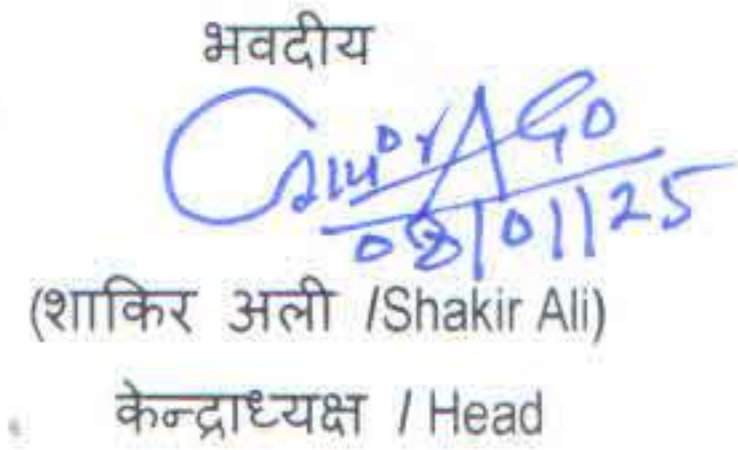 भवदीय
08/01/25
(शाकिर अली /Shakir Ali)
केन्द्राध्यक्ष / Head